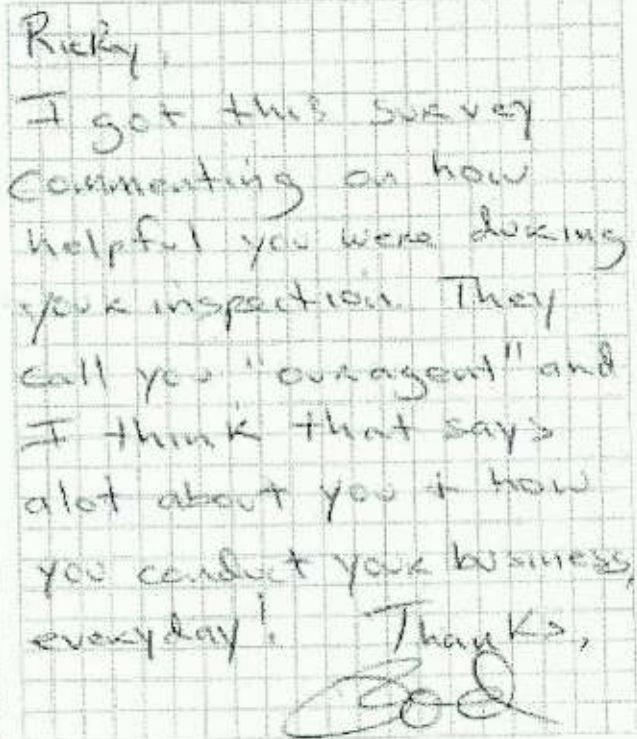 Ricky,
I got this survey
Commenting on how
helpful you were during
your inspection. They
call you "our agent" and
I think that says
alot about you + how
you conduct your business,
everyday! Thanks,